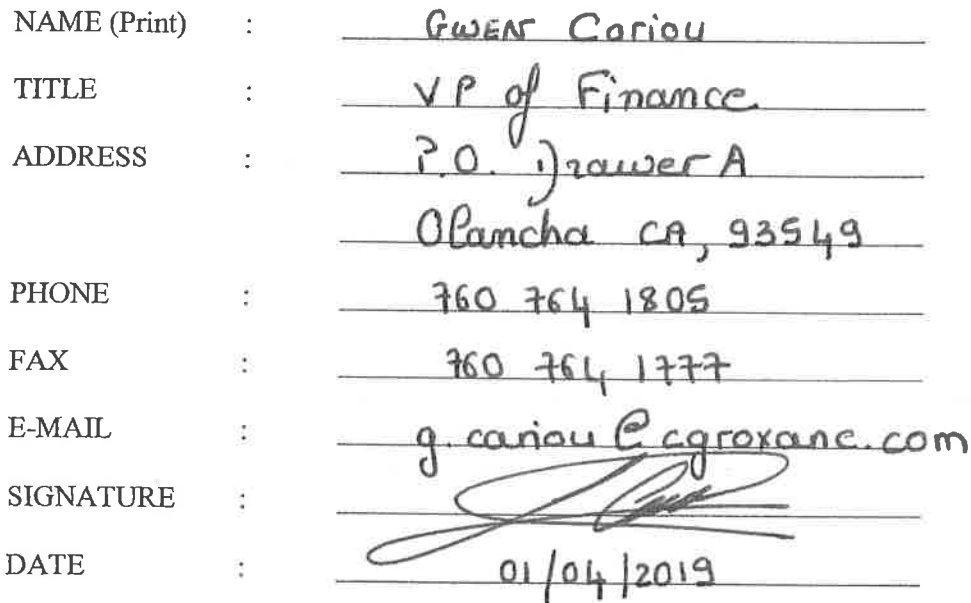 NAME (Print) : GWEN Cariou
TITLE : VP of Finance
ADDRESS : P.O. Drawer A
Olancha CA, 93549
PHONE : 760 764 1805
FAX : 760 764 1777
E-MAIL : g.cariou@cgroxane.com
SIGNATURE :
DATE : 01/04/2019